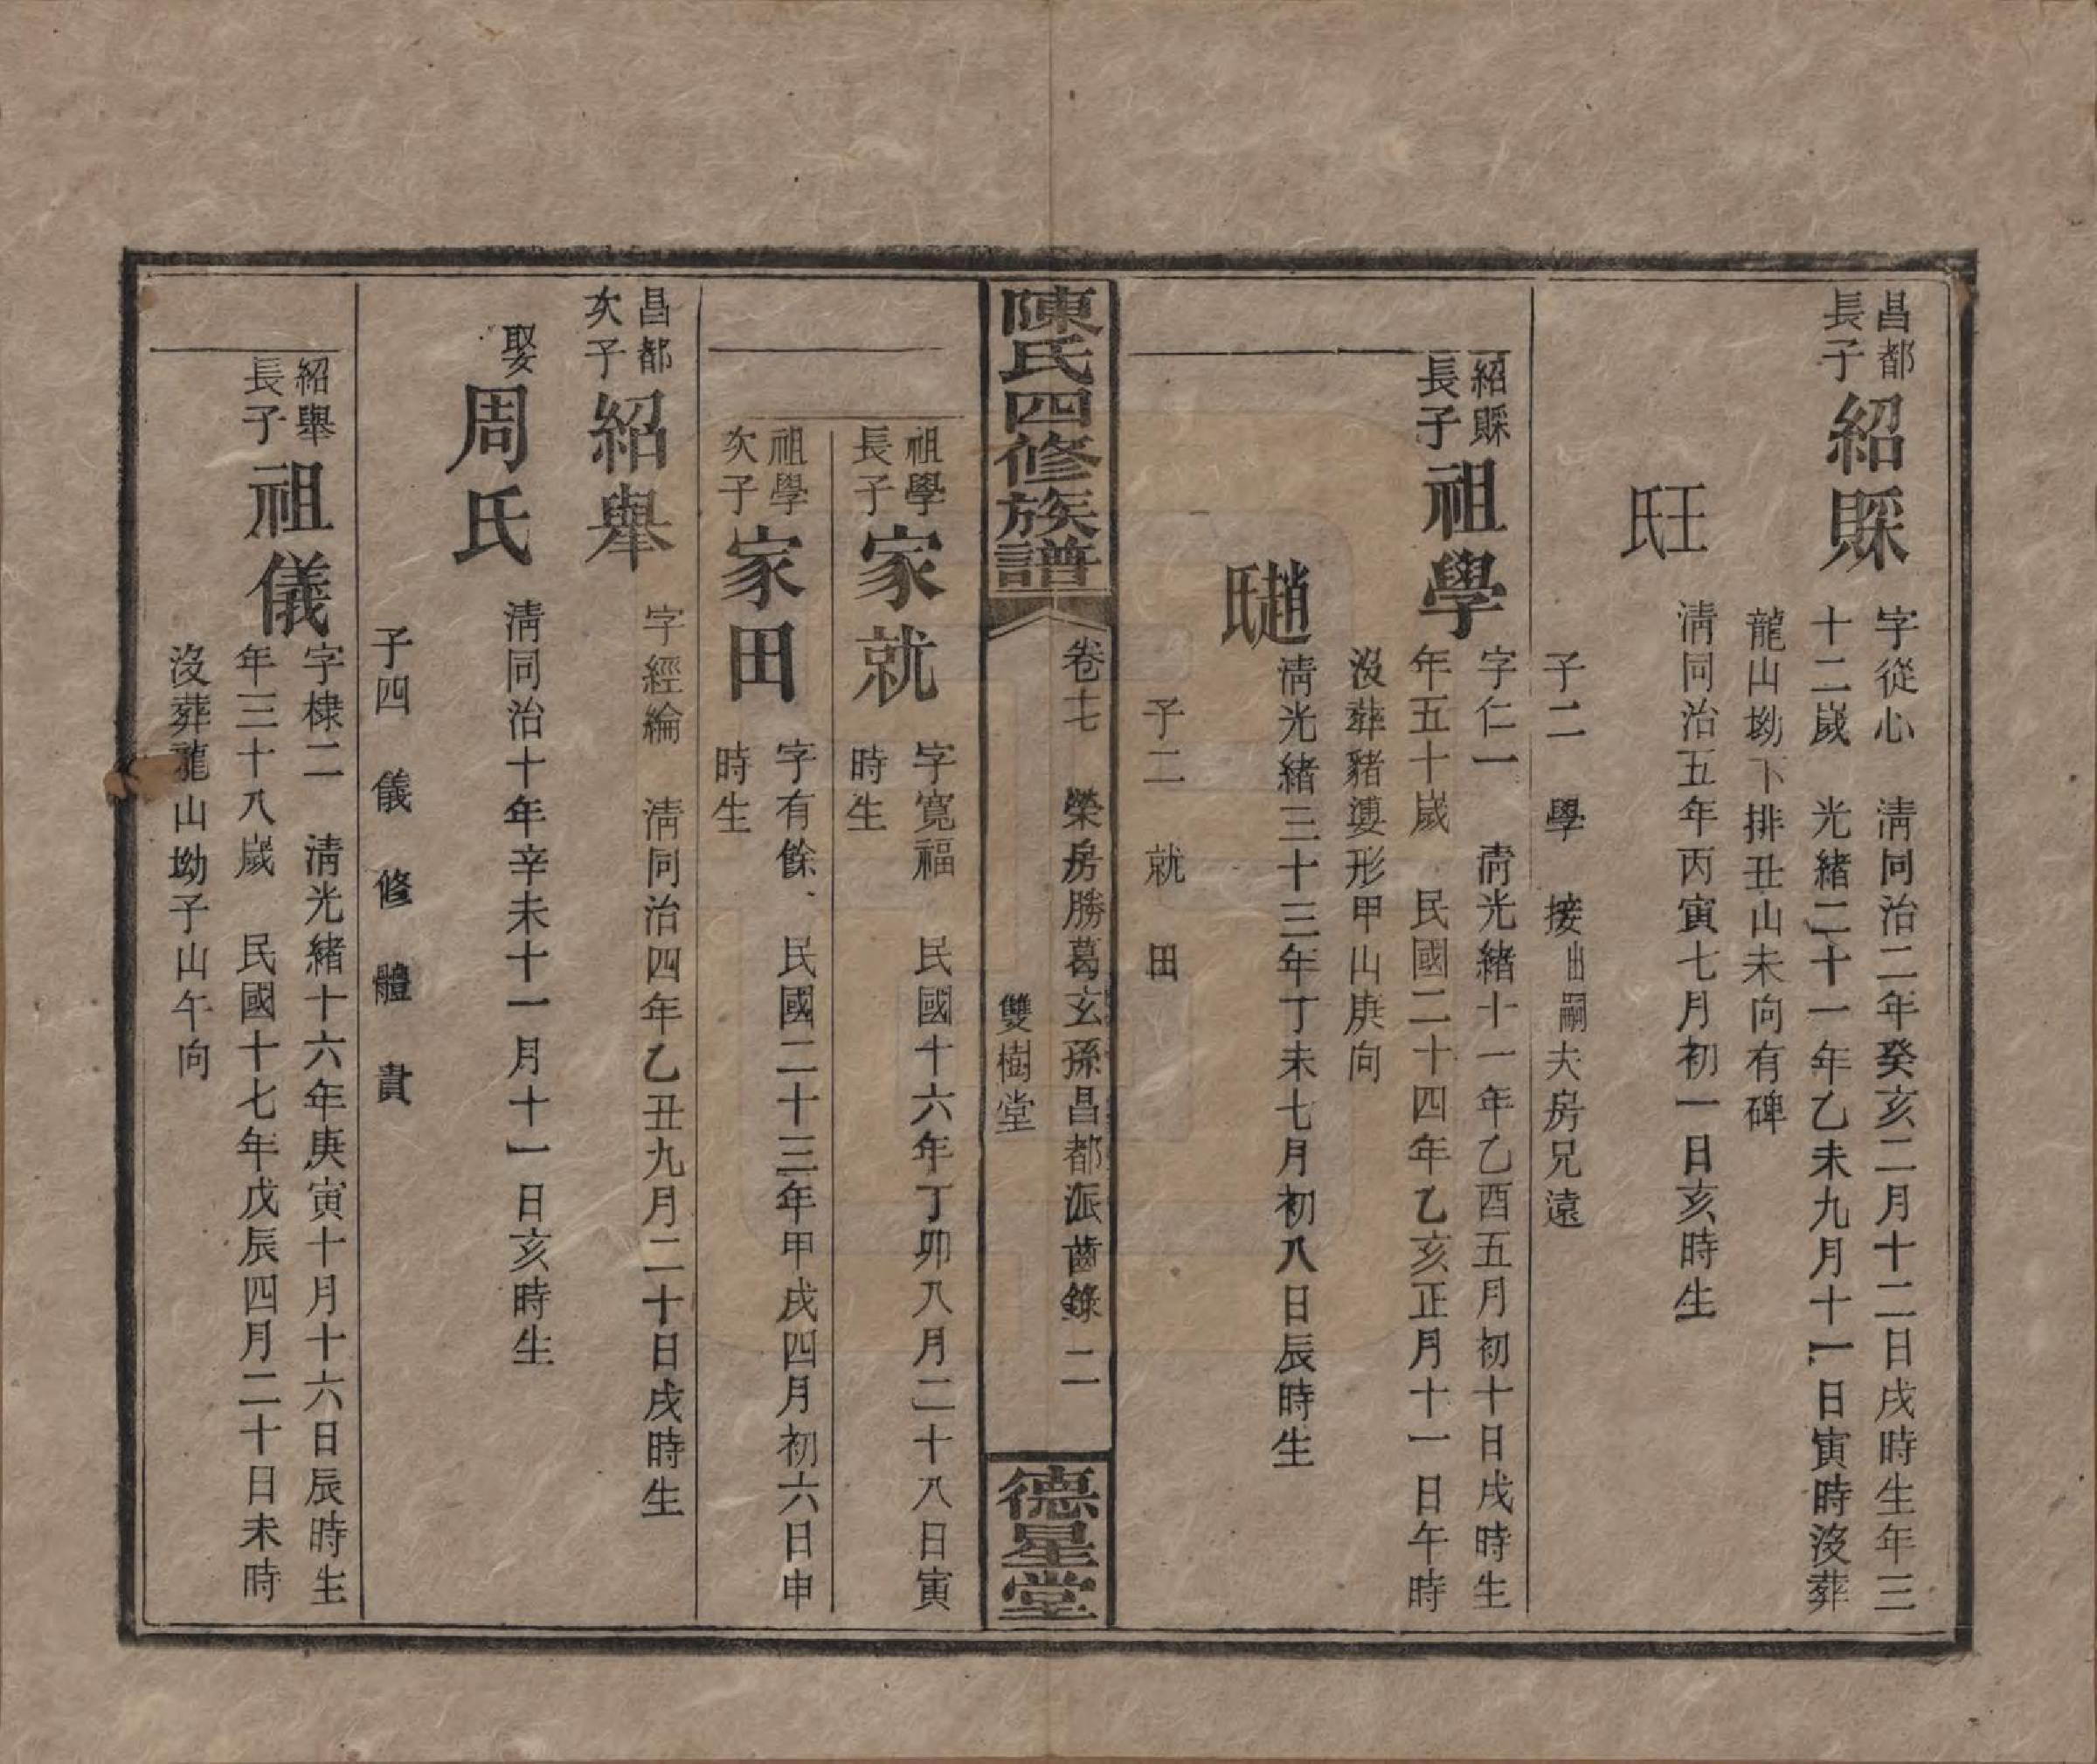 昌都
長子
紹賝
字從心　淸同治二年癸亥二月十二日戌時生年三
十二歲　光緒二十一年乙未九月十一日寅時沒葬
龍山坳下排丑山未向有碑
王氏
淸同治五年丙寅七月初一日亥時生
子二　學　接出嗣夫房兄遠
紹賝
長子
祖學
字仁一　淸光緒十一年乙酉五月初十日戌時生
年五十歲　民國二十四年乙亥正月十一日午時
沒葬豬形甲山庚向
趙氏
淸光緒三十三年丁未七月初八日辰時生
子二　就　田
陳氏四修族譜
卷十七　榮房勝葛玄孫昌都派齒錄　二
雙樹堂
德星堂
祖學
長子
家就
字寬福　民國十六年丁卯八月二十八日寅
時生
祖學
次子
家田
字有餘　民國二十三年甲戌四月初六日申
時生
昌都
次子
紹舉
字經綸　淸同治四年乙丑九月二十日戌時生
娶
周氏
淸同治十年辛未十一月十一日亥時生
子四　儀　修　體　貴
紹舉
長子
祖儀
字棣二　淸光緒十六年庚寅十月十六日辰時生
年三十八歲　民國十七年戊辰四月二十日未時
沒葬龍山坳子山午向